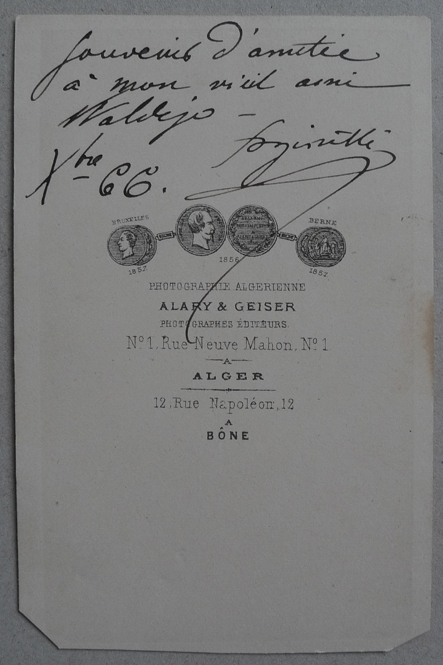 Souvenir d'amitié
à mon vieil ami
Xbre 66.
BRUXELLES
BERNE
1857
1856
1857
PHOTOGRAPHIE ALGERIENNE
ALARY & GEISER
PHOTOGRAPHES ÉDITEURS.
No 1. Rue Neuve Mahon, No 1
A
ALGER
12, Rue Napoléon, 12
A
BÔNE